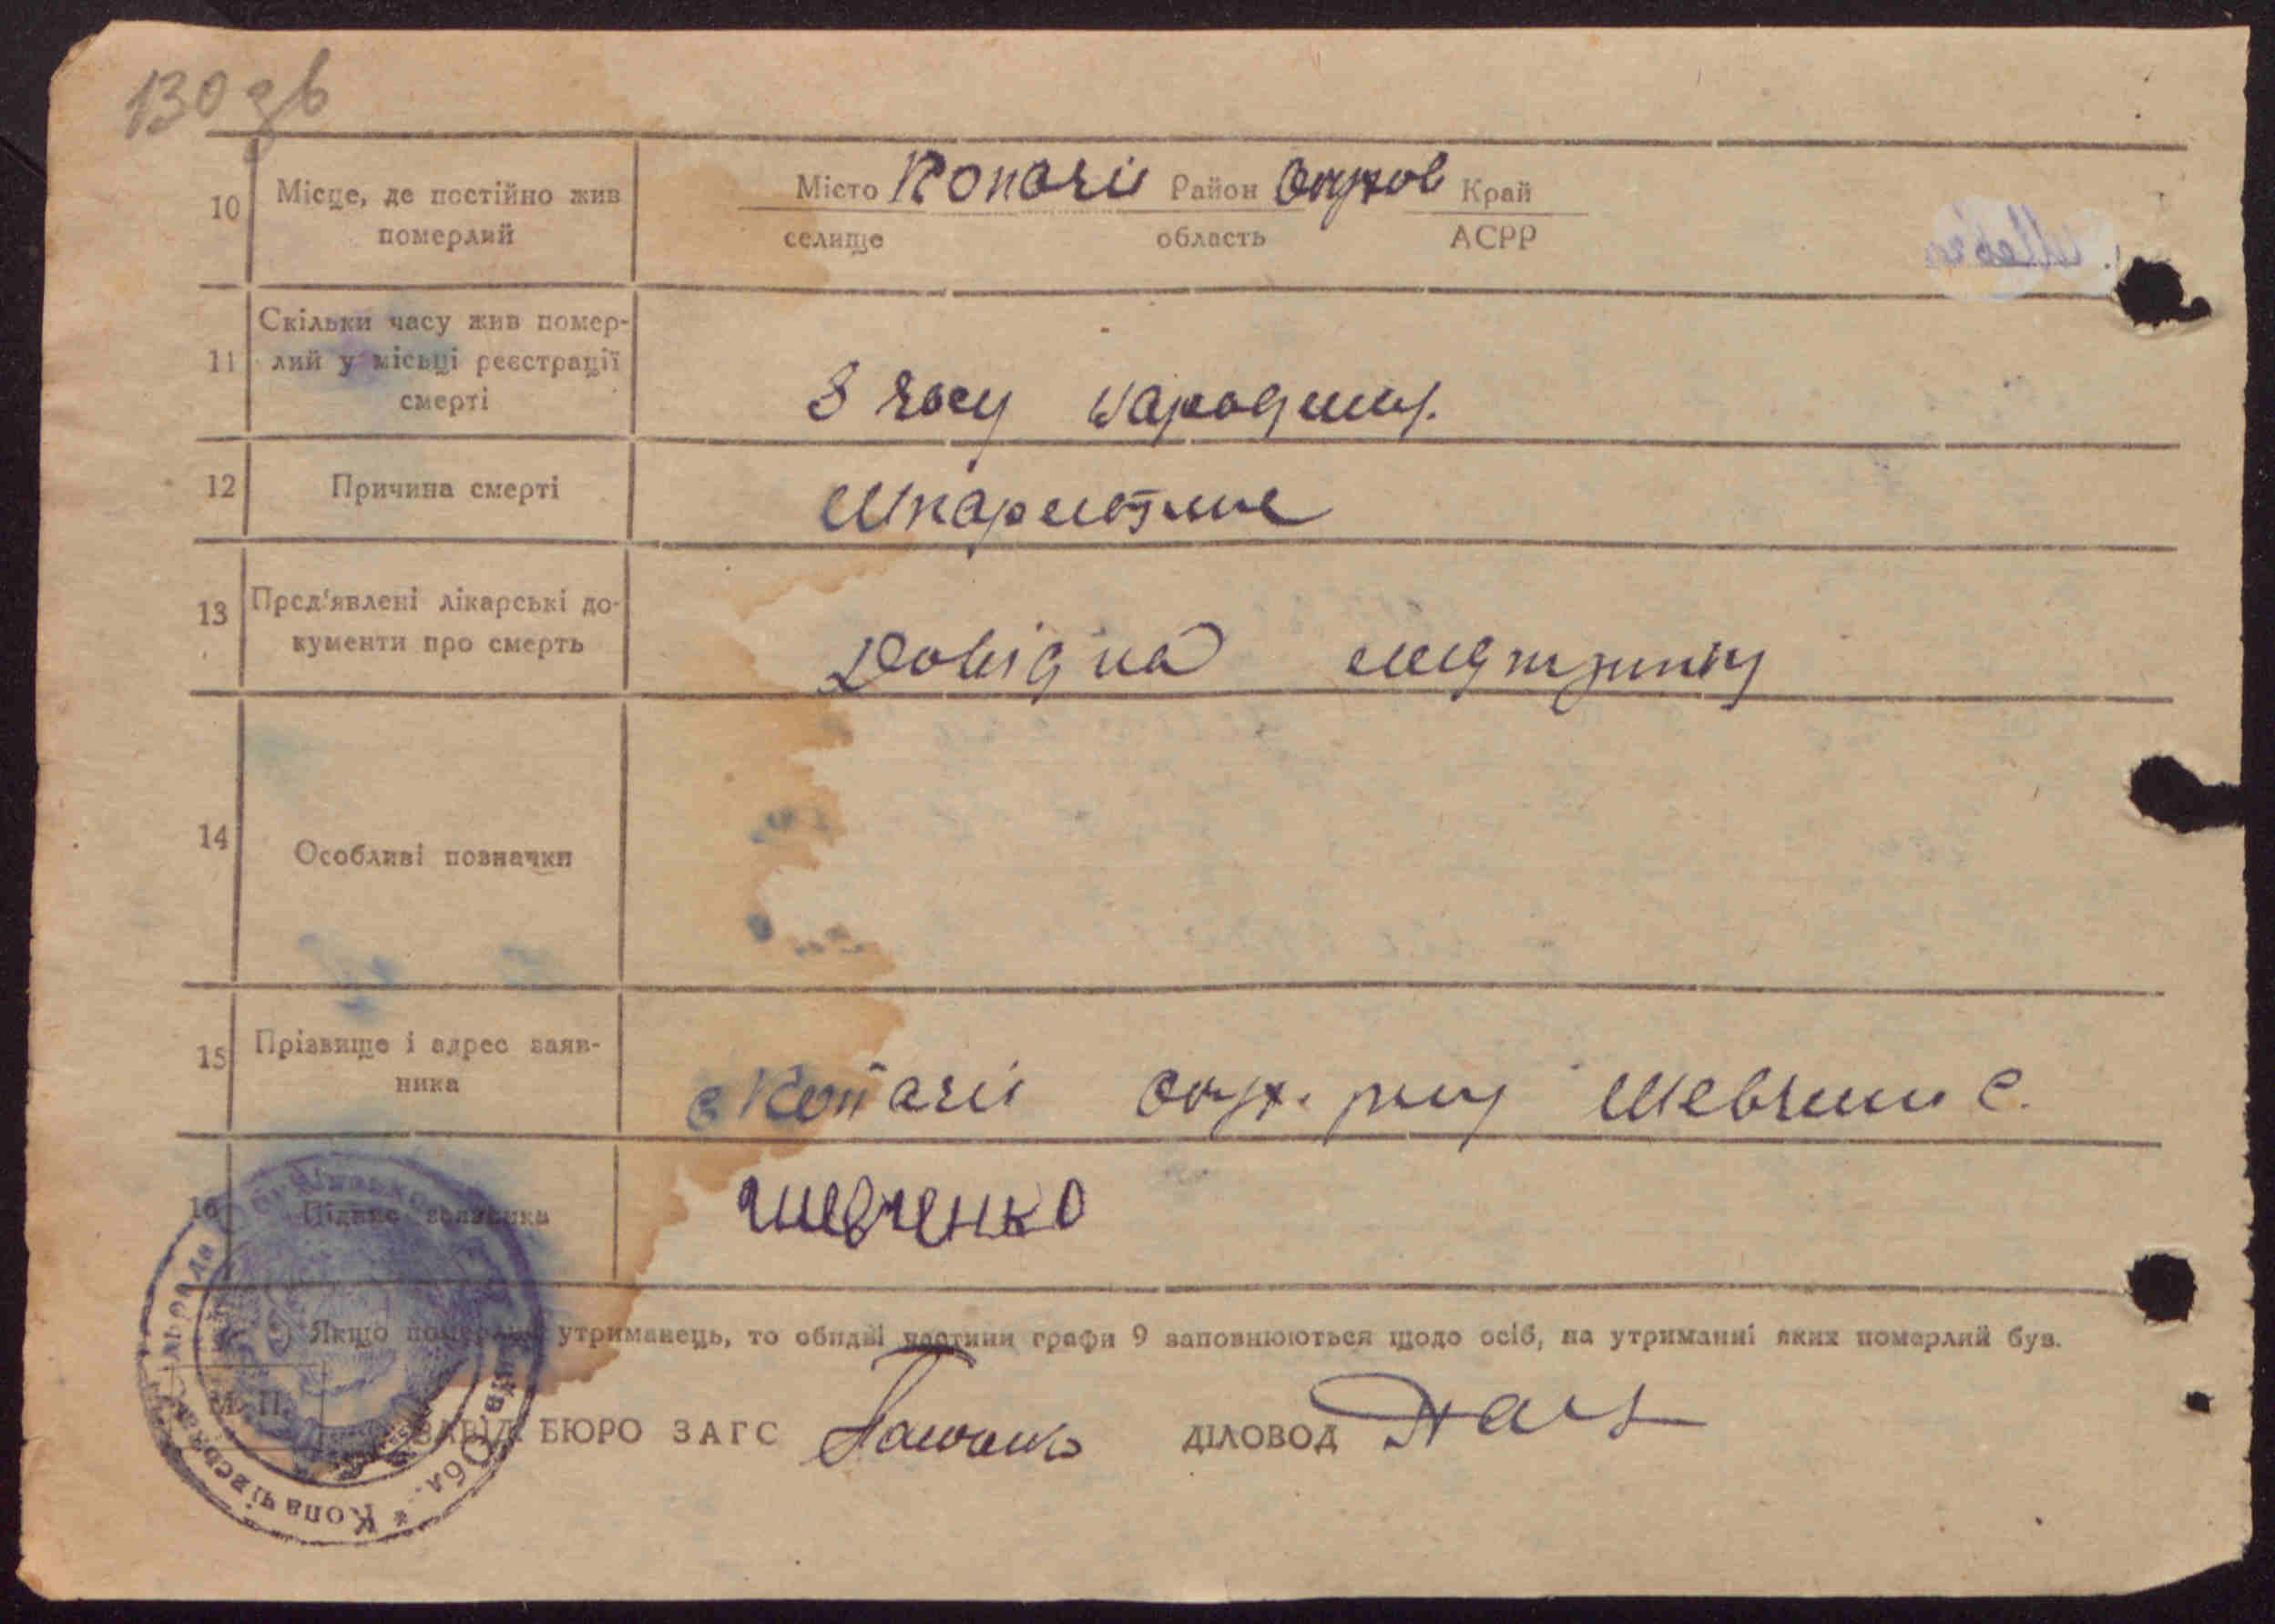 130 зв
10 Місце, де постійно жив померлий
Місто Копачів Район Обухов Край
селище область АСРР
11 Скільки часу жив помер-
лий у місьці реєстрації
смерті
З часу народжин.
12 Причина смерті
Шкарлятина
13 Пред'явлені лікарські до-
кументи про смерть
Довідка медпункту
14 Особливі позначки
15 Прізвище і адрес заяв-
ника
с Копачів Обух. р-ну Шевченко Є.
16 Підпис заявника
Шевченко
Якщо померлий утриманець, то обидві частини графи 9 заповнюються щодо осіб, на утриманні яких померлий був.
М. П.
ЗАВІД. БЮРО ЗАГС
ДІЛОВОД
Київ. Обл. * Копачівська сільрада